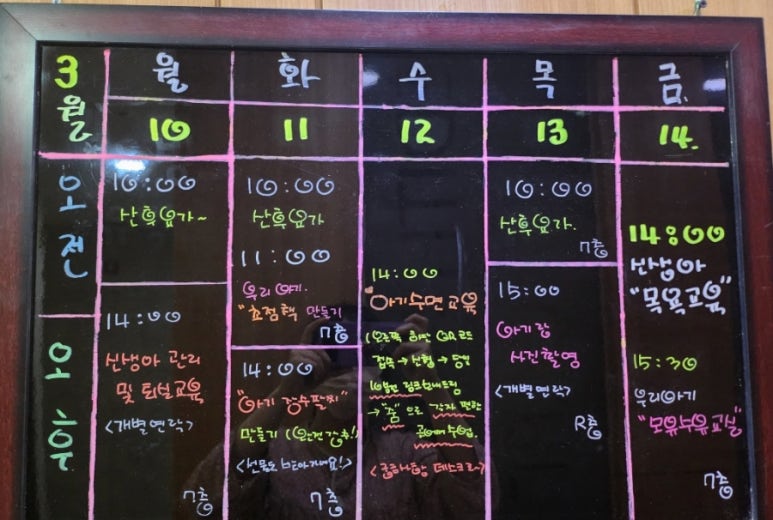 3월
월 화 수 목 금
10 11 12 13 14.
오전
오후
10:00
산후요가~
14:00
신생아 관리
및 퇴실교육
<개별연락>
7층
10:00
산후요가
11:00
우리 아기
"초점책 만들기
7층
14:00
"아기 장수팔찌"
만들기
7층
14:00
"아기수면교육
접속 → 신청 →
→ "줌"으로 각자 편한
데스크로~>
10:00
산후요가.
7층
15:00
아기랑
사진촬영
<개별연락>
R층
14:00
신생아
"목욕교육"
15:30
우리아기
"모유수유교실"
7층